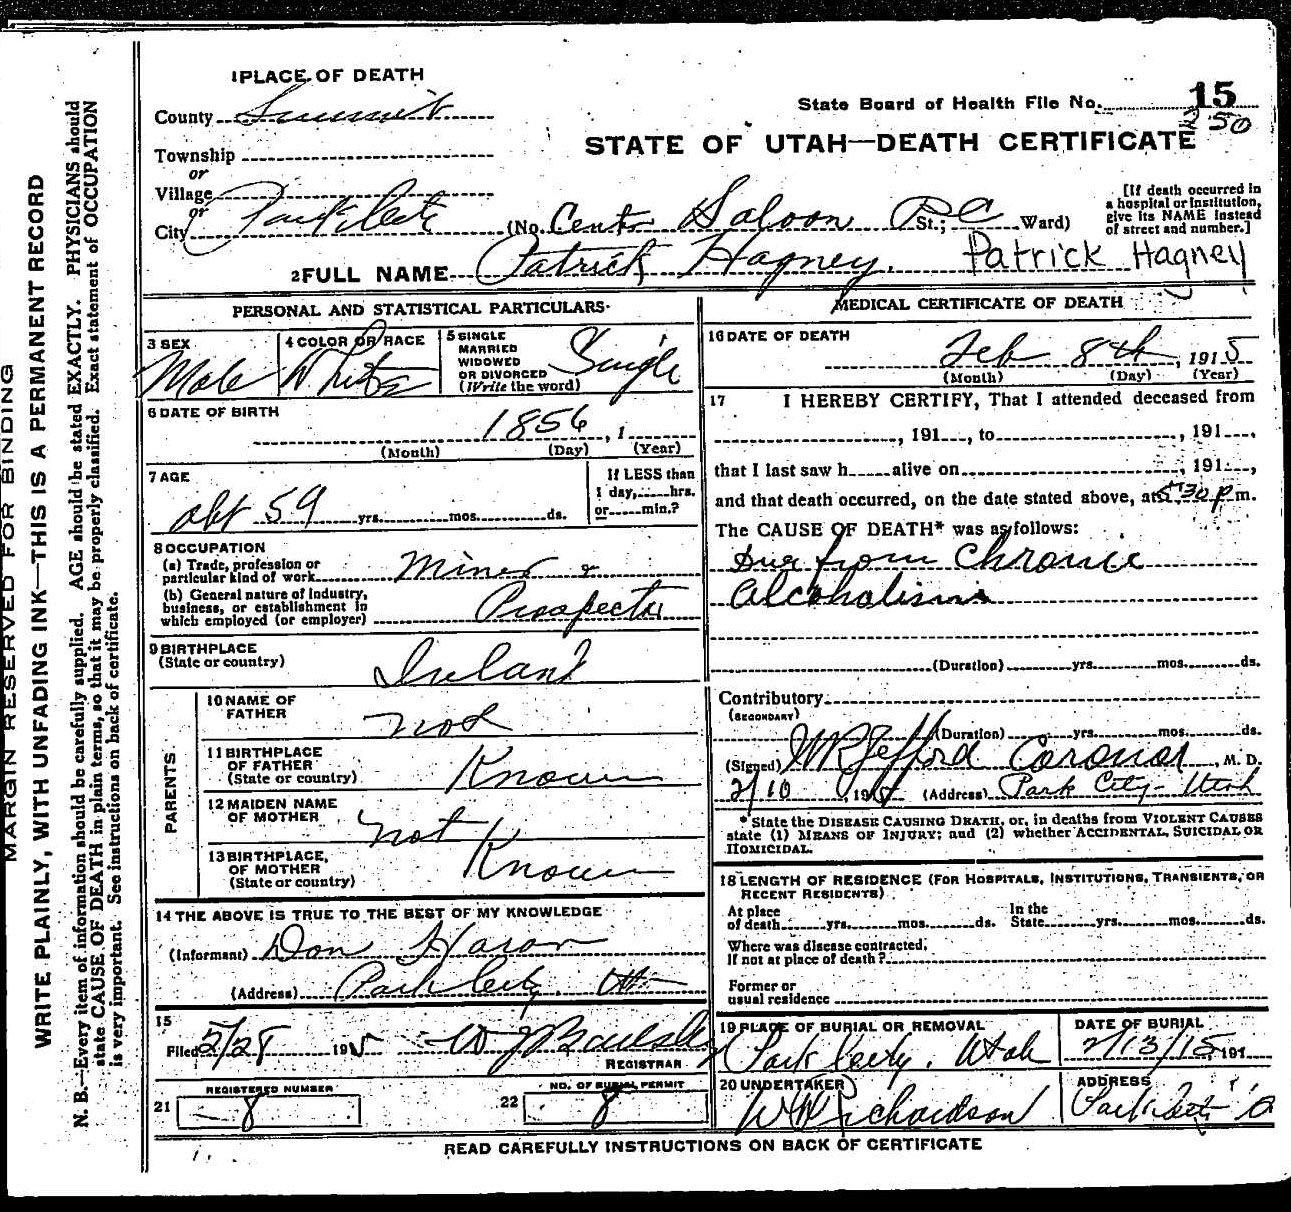 MARGIN RESERVED FOR BINDING
WRITE PLAINLY, WITH UNFADING INK—THIS IS A PERMANENT RECORD
N. B.—Every item of information should be carefully supplied. AGE should be stated EXACTLY. PHYSICIANS should
state CAUSE OF DEATH in plain terms, so that it may be properly classified. Exact statement of OCCUPATION
is very important. See instructions on back of certificate.
1 PLACE OF DEATH
County Summit
State Board of Health File No. 15
250
STATE OF UTAH—DEATH CERTIFICATE
Township
or
Village
or
City Park City (No. Saloon P C St.; Ward)
[If death occurred in
a hospital or institution,
give its NAME instead
of street and number.]
2 FULL NAME Patrick Hagney. Patrick Hagney
PERSONAL AND STATISTICAL PARTICULARS
3 SEX
Male
4 COLOR OR RACE
White
5 SINGLE
MARRIED
WIDOWED
OR DIVORCED
(Write the word)
Single
6 DATE OF BIRTH
1856, 1
(Month) (Day) (Year)
7 AGE
abt 59 yrs. mos. ds.
If LESS than
1 day, hrs.
or min.?
8 OCCUPATION
(a) Trade, profession or
particular kind of work Miner &
(b) General nature of industry,
business, or establishment in
which employed (or employer) Prospector
9 BIRTHPLACE
(State or country)
Ireland
PARENTS
10 NAME OF
FATHER
not
11 BIRTHPLACE
OF FATHER
(State or country)
Known
12 MAIDEN NAME
OF MOTHER
not
13 BIRTHPLACE,
OF MOTHER
(State or country)
Known
14 THE ABOVE IS TRUE TO THE BEST OF MY KNOWLEDGE
(Informant) Don
(Address) Park City,
15
Filed 2/28 1915
REGISTRAR
21 REGISTERED NUMBER
8
22 NO. OF BURIAL PERMIT
8
MEDICAL CERTIFICATE OF DEATH
16 DATE OF DEATH
Feb 8th, 1915
(Month) (Day) (Year)
17 I HEREBY CERTIFY, That I attended deceased from
, 191 , to , 191 ,
that I last saw h alive on , 191 ,
and that death occurred, on the date stated above, at 5:30 p m.
The CAUSE OF DEATH* was as follows:
from Chronic
Alcoholism
(Duration) yrs. mos. ds.
Contributory
(SECONDARY)
(Duration) yrs. mos. ds.
(Signed) Coroner, M. D.
2/10, 191 (Address) Park City- Utah
* State the DISEASE CAUSING DEATH, or, in deaths from VIOLENT CAUSES
state (1) MEANS OF INJURY; and (2) whether ACCIDENTAL, SUICIDAL OR
HOMICIDAL.
18 LENGTH OF RESIDENCE (FOR HOSPITALS, INSTITUTIONS, TRANSIENTS, OR
RECENT RESIDENTS)
At place
of death yrs. mos. ds.
In the
State yrs. mos. ds.
Where was disease contracted,
if not at place of death?
Former or
usual residence
19 PLACE OF BURIAL OR REMOVAL
Park City, Utah
DATE OF BURIAL
2/13/15 191
20 UNDERTAKER
W W Richardson
ADDRESS
Park City
READ CAREFULLY INSTRUCTIONS ON BACK OF CERTIFICATE